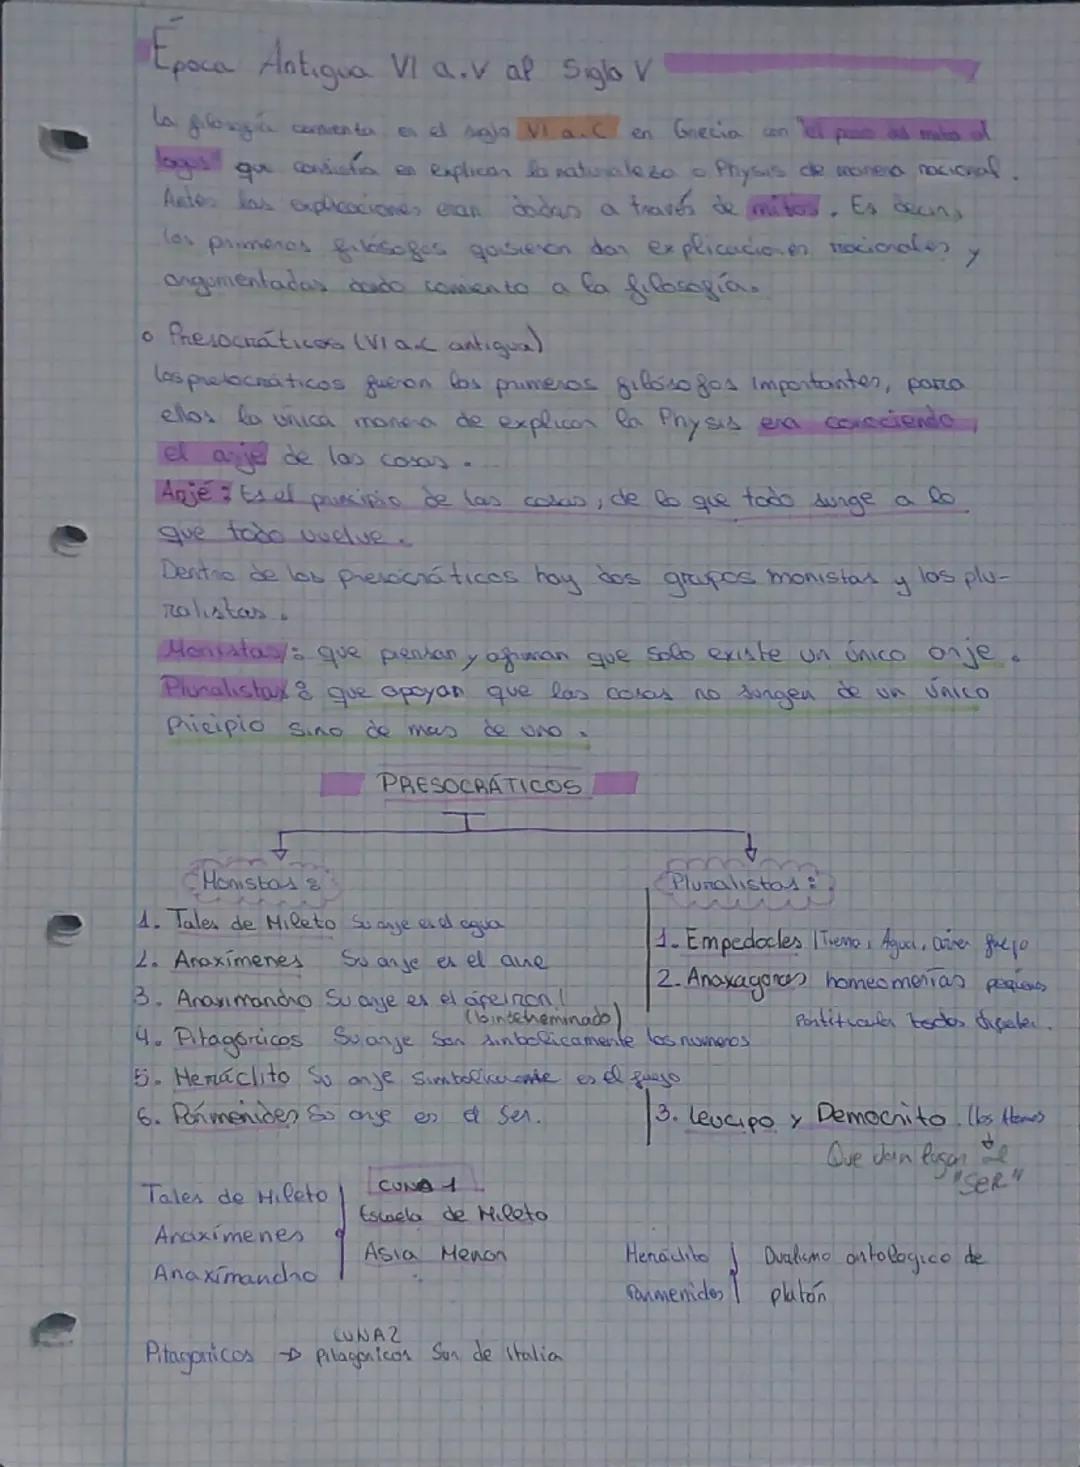 Época Antigua VI a.V al Siglo V
La filosofía comienta en el siglo VI a.C en Grecia con "el paso del mito al
logos" que consistía en explicar la naturaleza o Physis de manera racional.
Antes las explicaciones eran dadas a través de mitos. Es decir,
los primeros filósofos quisieron dar explicaciones racionales y
argumentadas dando comiento a la filosofía.
o Presocráticos (VI a.C antigua)
Los presocráticos fueron los primeros filósofos importantes, para
ellos la única manera de explicar la Physis era conociendo
el arje de las cosas.
Arjé: Es el principio de las cosas, de lo que todo surge a lo
que todo vuelve.
Dentro de los presocráticos hay dos grupos monistas y los plu-
ralistas.
Monistas: que piensan y afirman que solo existe un único arje.
Pluralistas: que apoyan que las cosas no surgen de un único
Pricipio sino de mas de uno.
PRESOCRÁTICOS
Monistas:
1. Tales de Mileto Su arje es el agua
2. Anaxímenes Su arje es el aire
3. Anaximandro Su arje es el ápeiron!
(lo indeterminado)
4. Pitagóricos Su arje son simbolicamente los numeros
5. Heráclito Su arje simbolicamente es el fuego
6. Parmenides Su arje es el Ser.
Pluralistas:
1. Empedocles (Tierra, Agua, aire, fuego
2. Anaxagoras homeomerías pequeñas
Partiticulas todas
3. Leucipo y Democrito. (los Atomos
Que dan lugar al
"SER"
Tales de Mileto
Anaxímenes
Anaxímandro
CUNA 1
Escuela de Mileto
Asia Menor
Heráclito
Parmenides
Dualismo ontologico de
platón
CUNA 2
Pitagoricos → Pitagoricos Sur de Italia